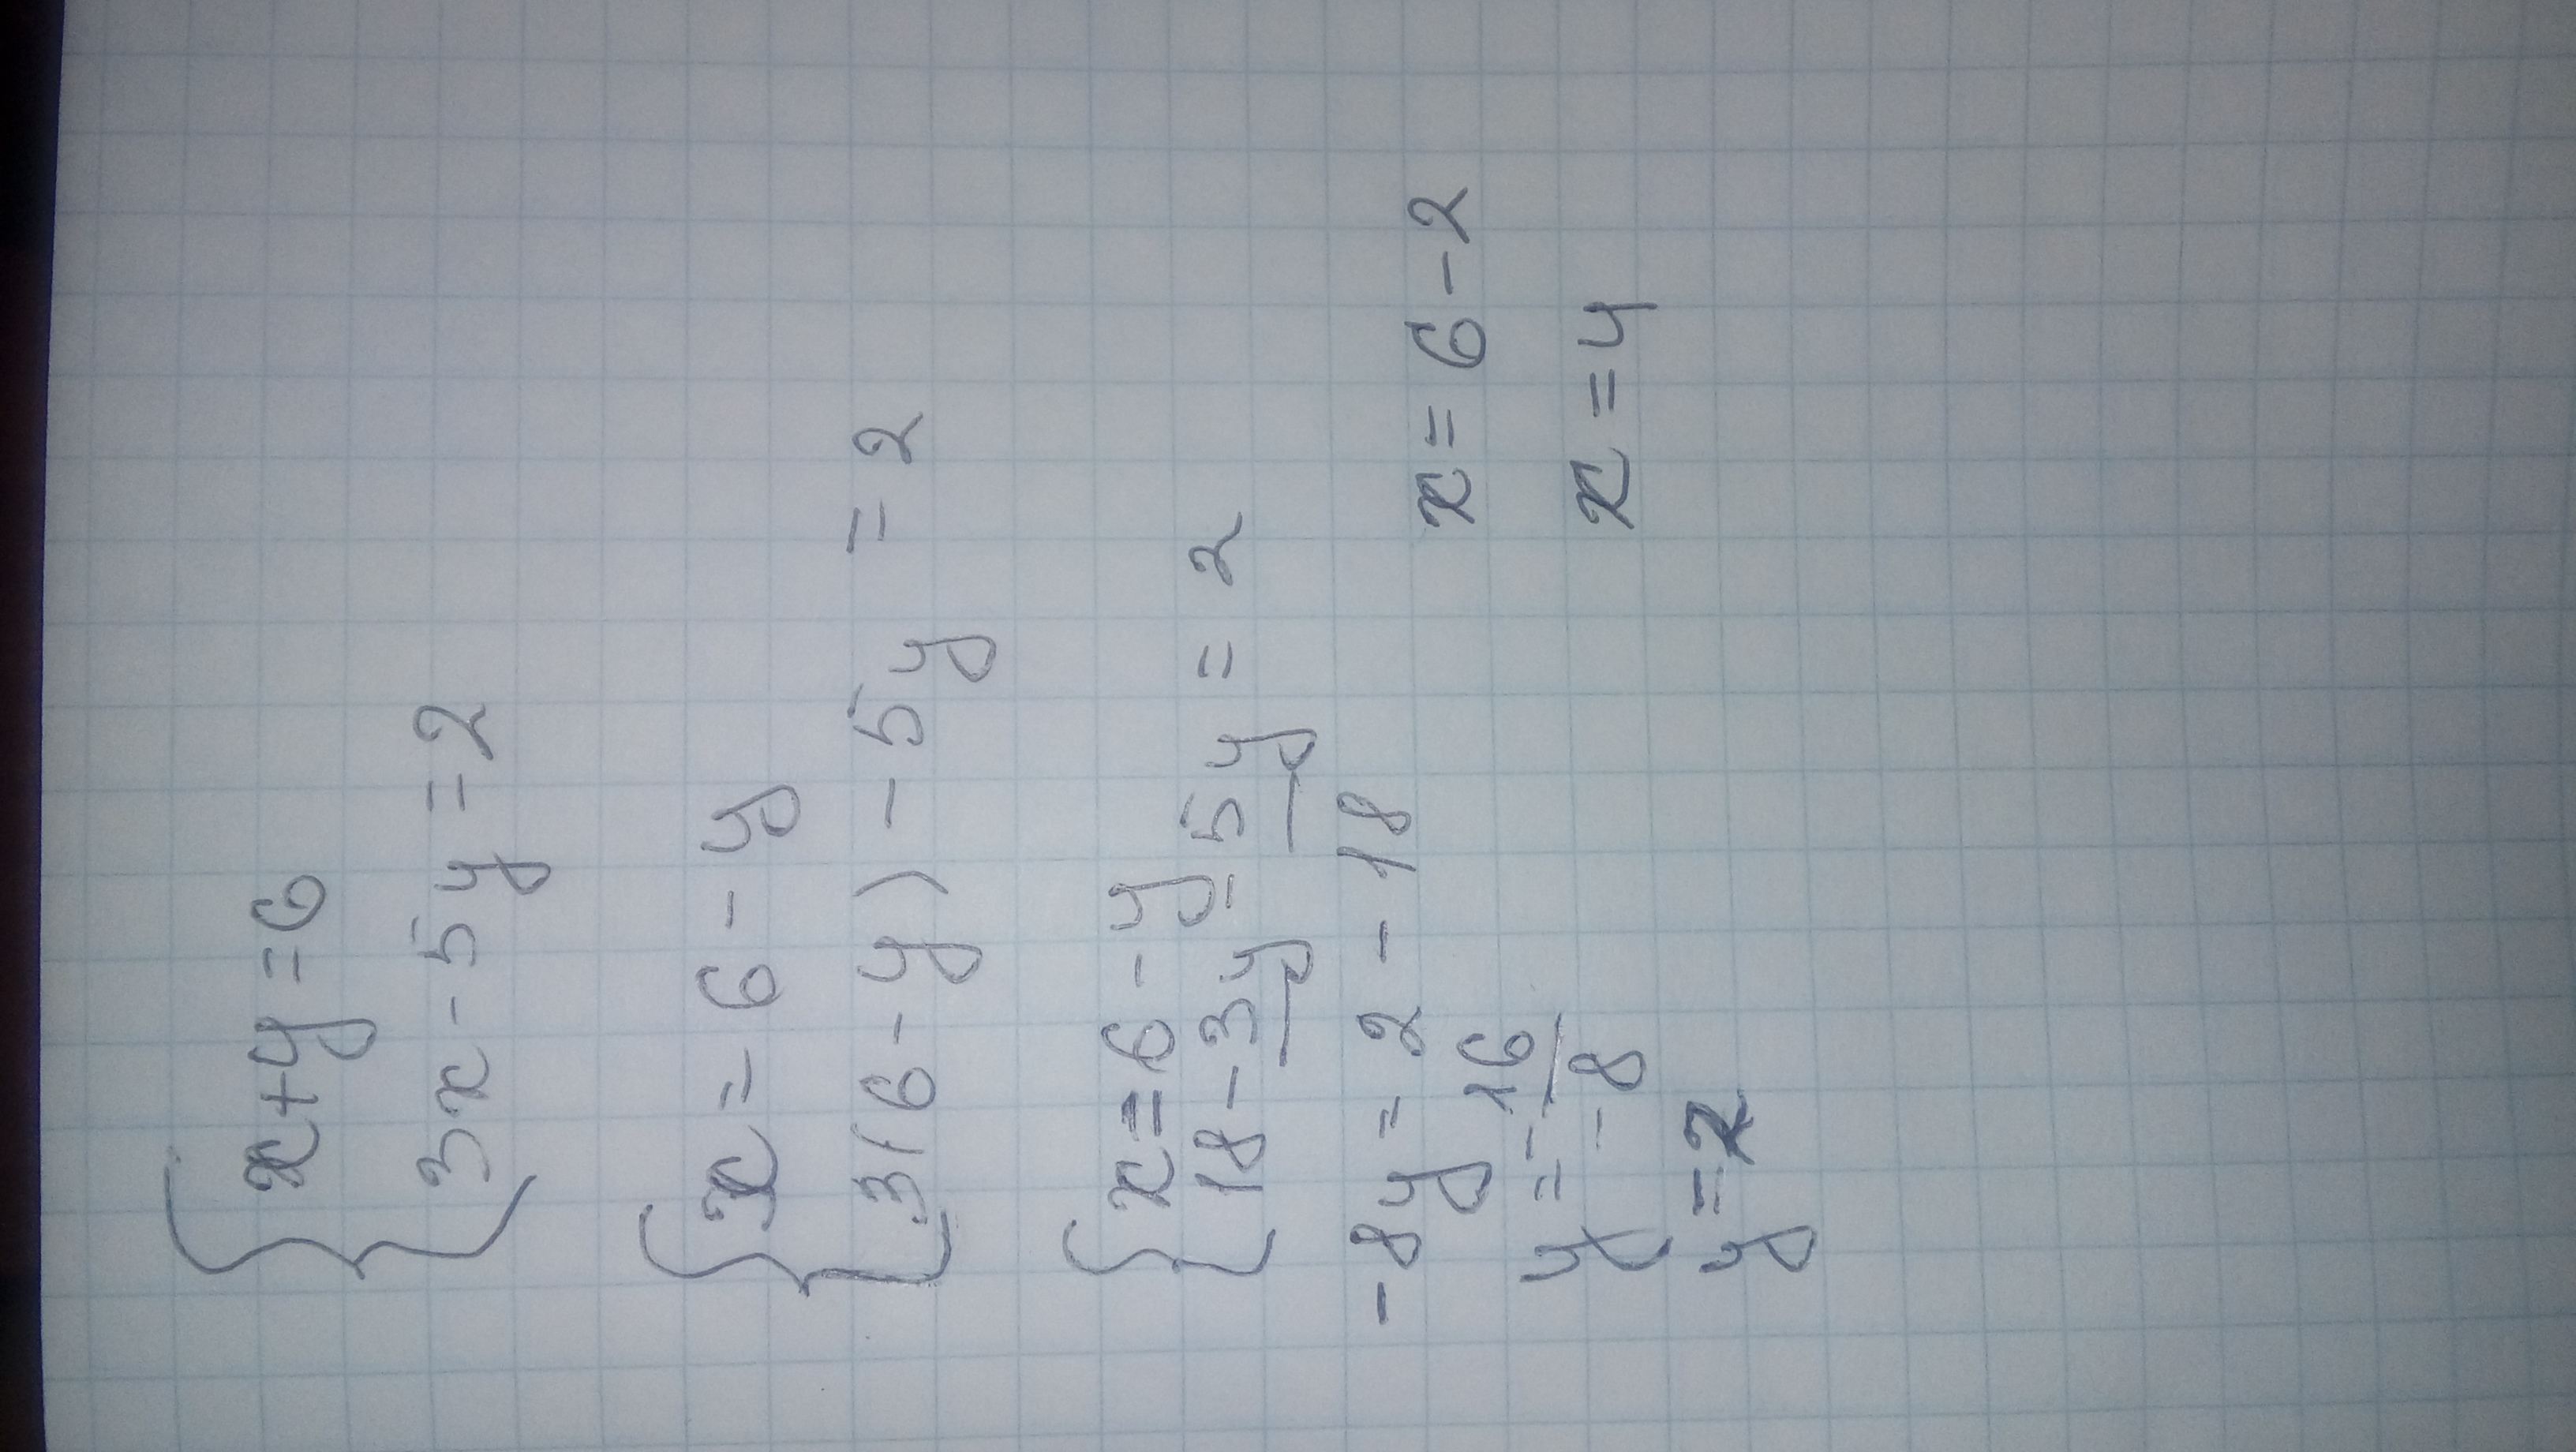 { x+y=6
3x-5y=2
{ x=6-y
3(6-y)-5y=2
{ x=6-y
18-3y-5y=2
-8y=2-18
y=-16/-8
y=2
x=6-2
x=4